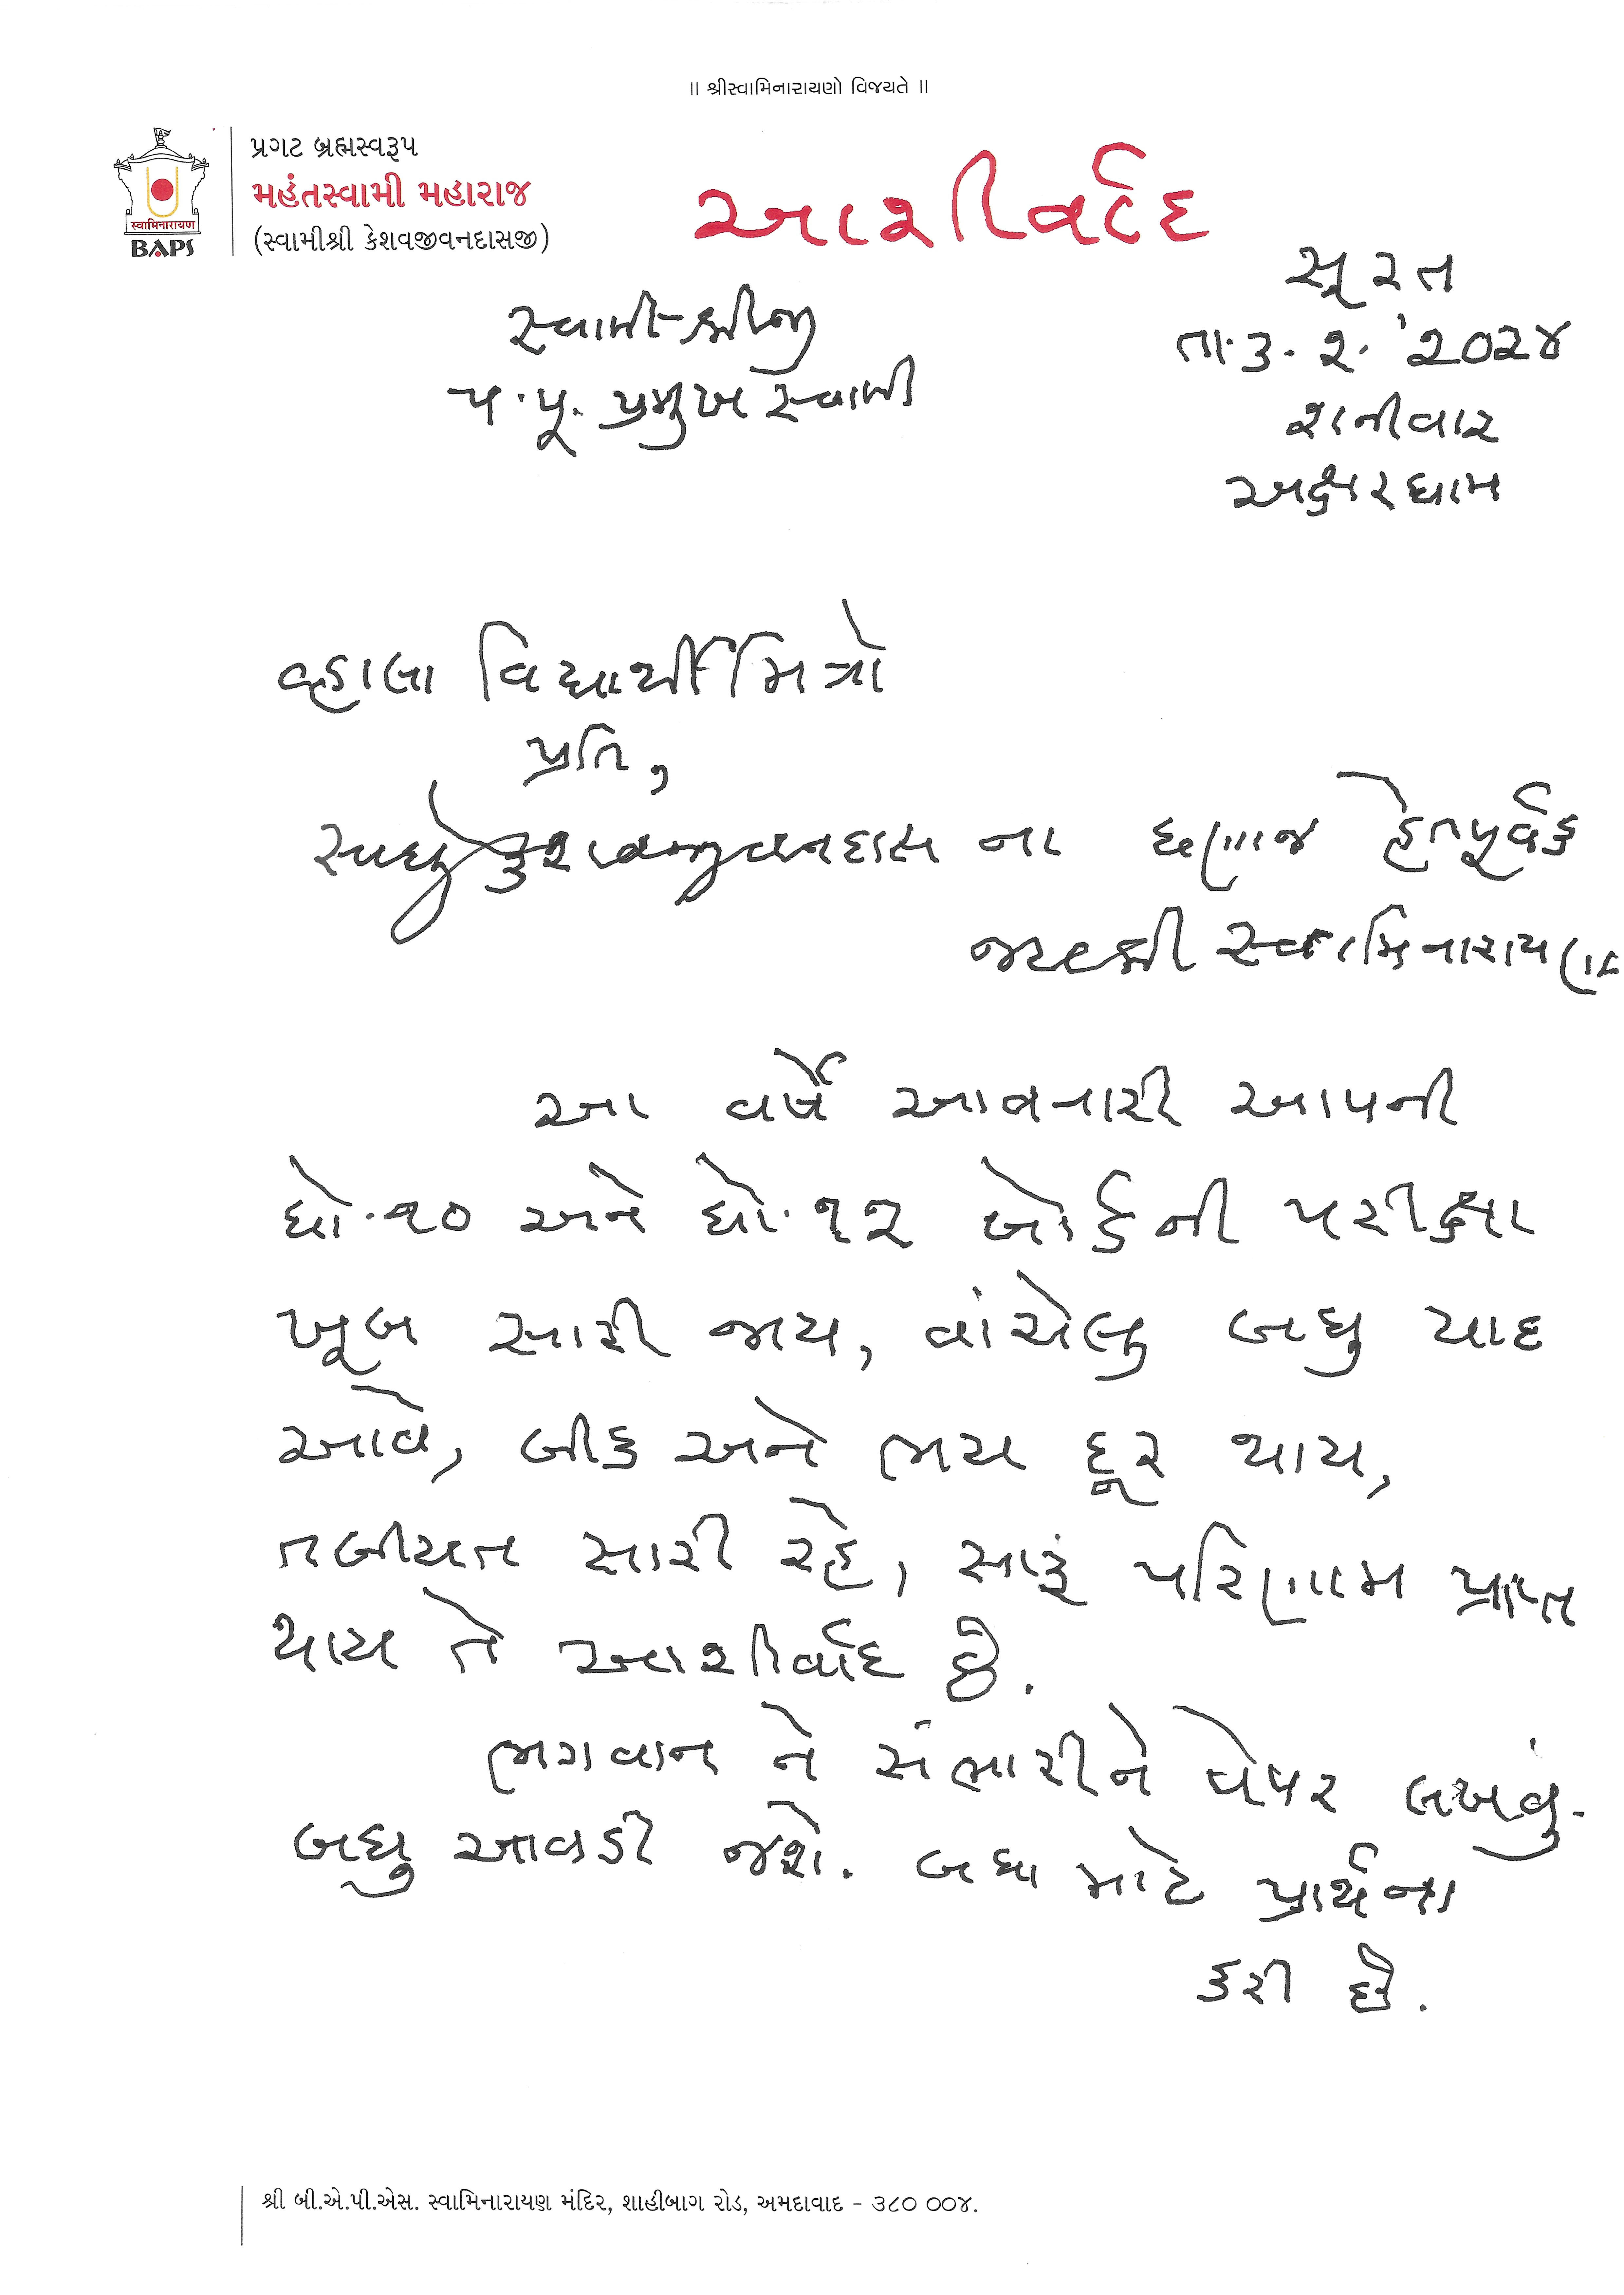 ॥ શ્રીસ્વામિનારાયણો વિજયતે ॥
પ્રગટ બ્રહ્મસ્વરૂપ
મહંતસ્વામી મહારાજ
(સ્વામીશ્રી કેશવજીવનદાસજી)
સ્વામિનારાયણ
BAPS
આશીર્વાદ
સૂરત
તા.૩.૨.'૨૦૨૪
શનીવાર
અક્ષરધામ
સ્વામી-શ્રીજી
પ.પૂ. પ્રમુખ સ્વામી
વ્હાલા વિદ્યાર્થીમિત્રો
પ્રતિ,
સાધુ કેશવજીવનદાસ ના ઘણાજ હેતપૂર્વક
જયશ્રી સ્વામિનારાયણ
આ વર્ષે આવનારી આપની
ધો.૧૦ અને ધો.૧૨ બોર્ડની પરીક્ષા
ખૂબ સારી જાય, વાંચેલુ બધુ યાદ
આવે, બીક અને ભય દૂર થાય,
તબીયત સારી રહે, સારૂં પરિણામ પ્રાપ્ત
થાય તે આશીર્વાદ છે.
ભગવાન ને સંભારીને પેપર લખવું.
બધુ આવડી જશે. બધા માટે પ્રાર્થના
કરી છે.
શ્રી બી.એ.પી.એસ. સ્વામિનારાયણ મંદિર, શાહીબાગ રોડ, અમદાવાદ - ૩૮૦ ૦૦૪.